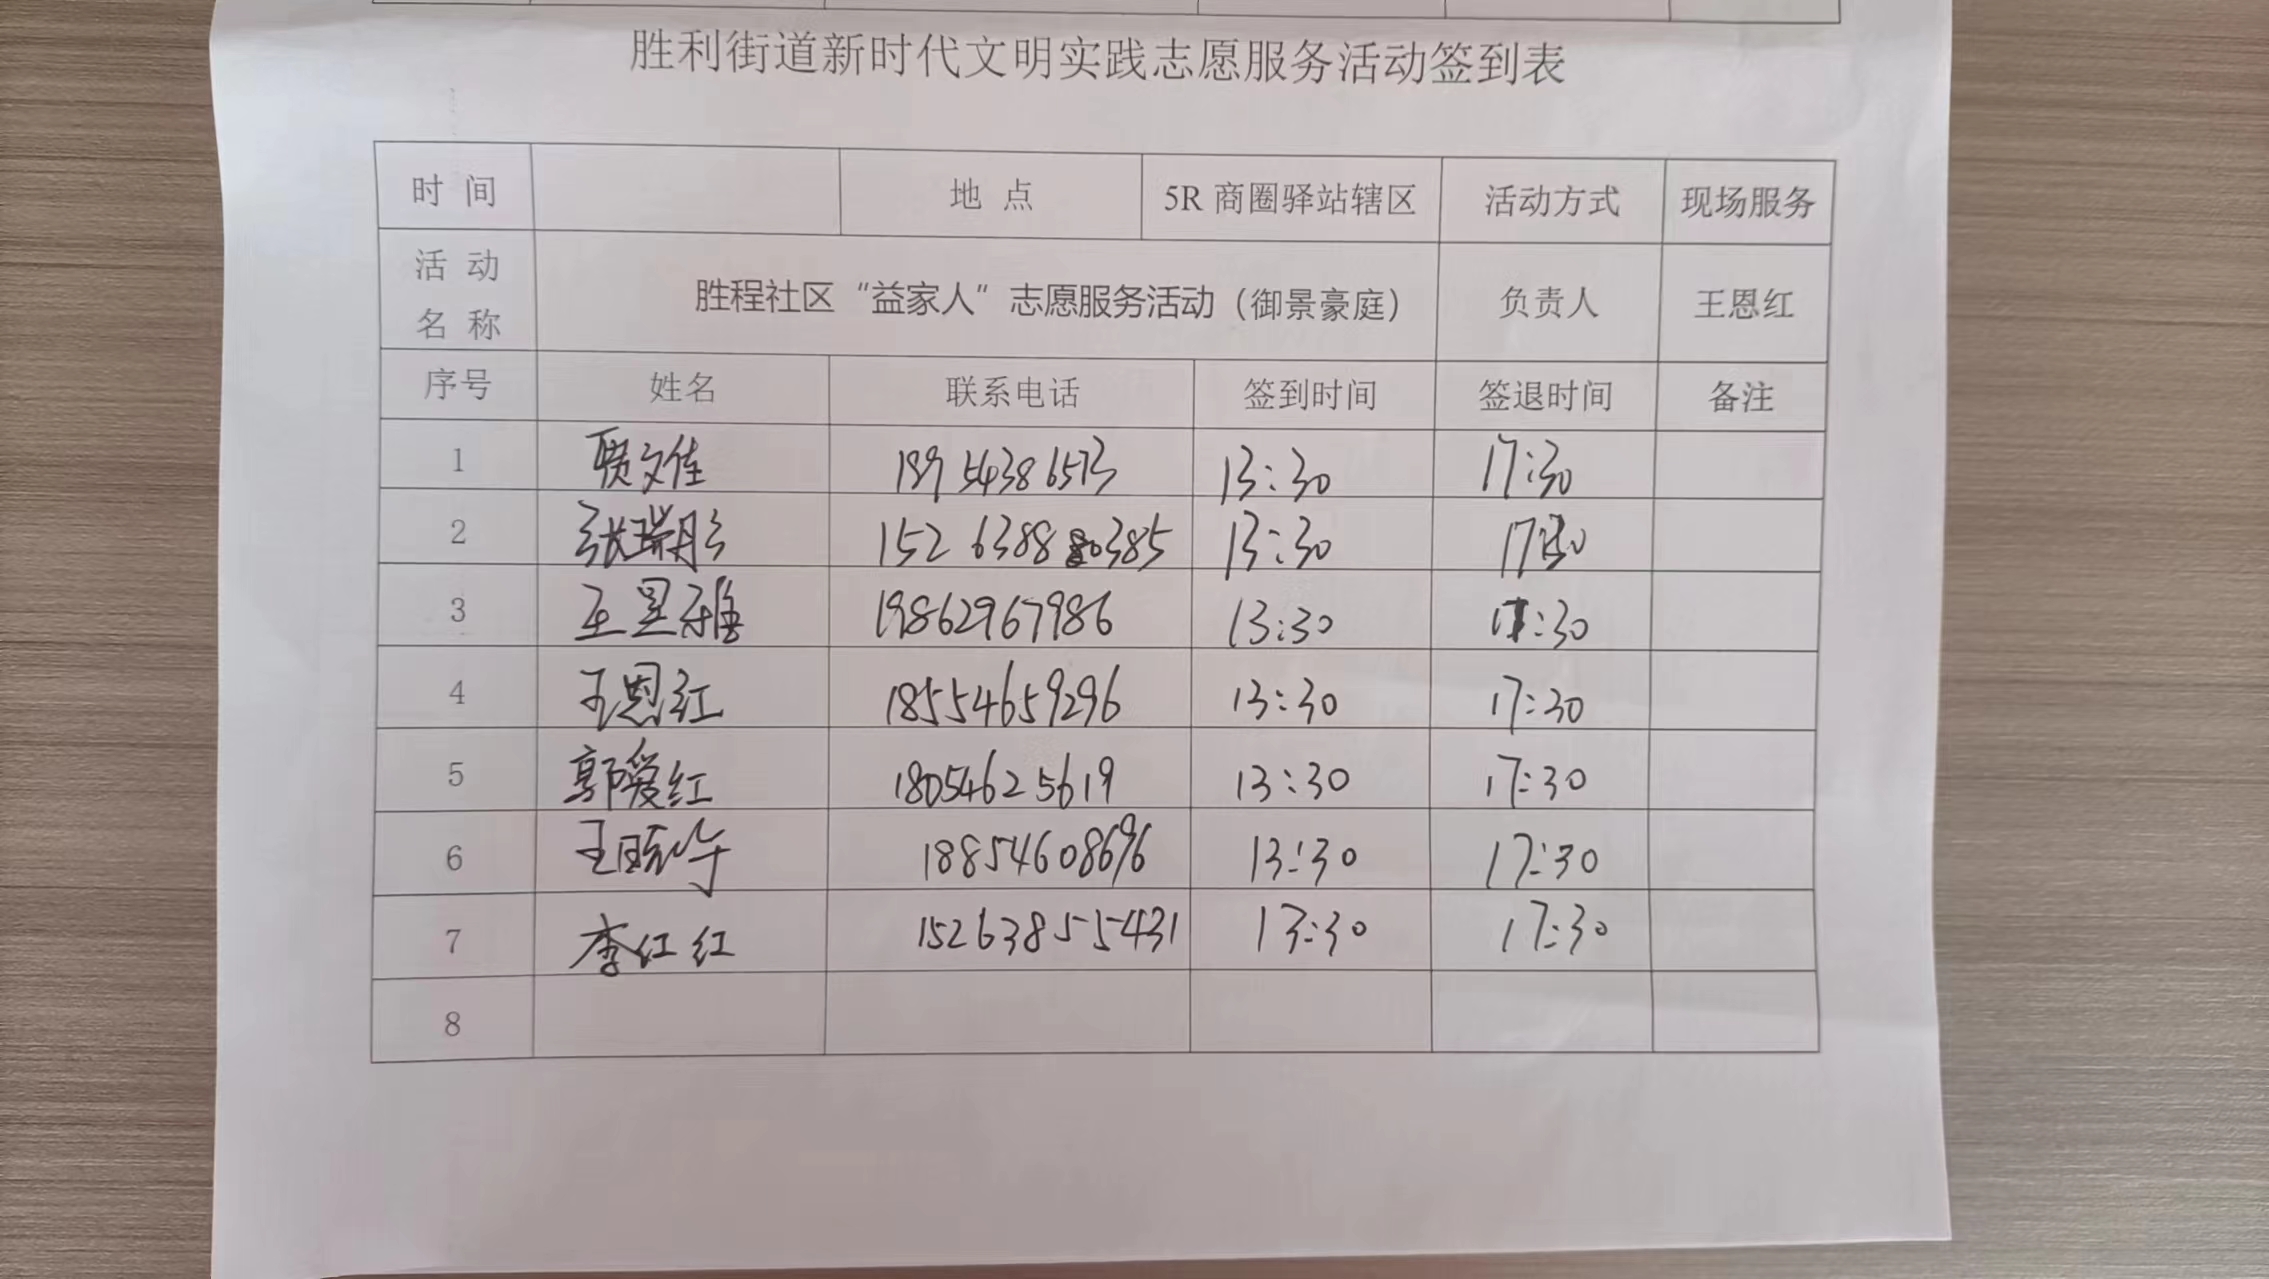 胜利街道新时代文明实践志愿服务活动签到表
时 间 地 点 5R 商圈驿站辖区 活动方式 现场服务
活 动 名 称 胜程社区“益家人”志愿服务活动（御景豪庭） 负责人 王恩红
序号 姓名 联系电话 签到时间 签退时间 备注
1 贾文佳 18954386573 13:30 17:30
2 张瑞彤 13:30 17:30
3 王 雅 19862967986 13:30 17:30
4 王恩红 18554659296 13:30 17:30
5 郭爱红 18054625619 13:30 17:30
6 王 华 18854608696 13:30 17:30
7 李红红 15263855431 13:30 17:30
8